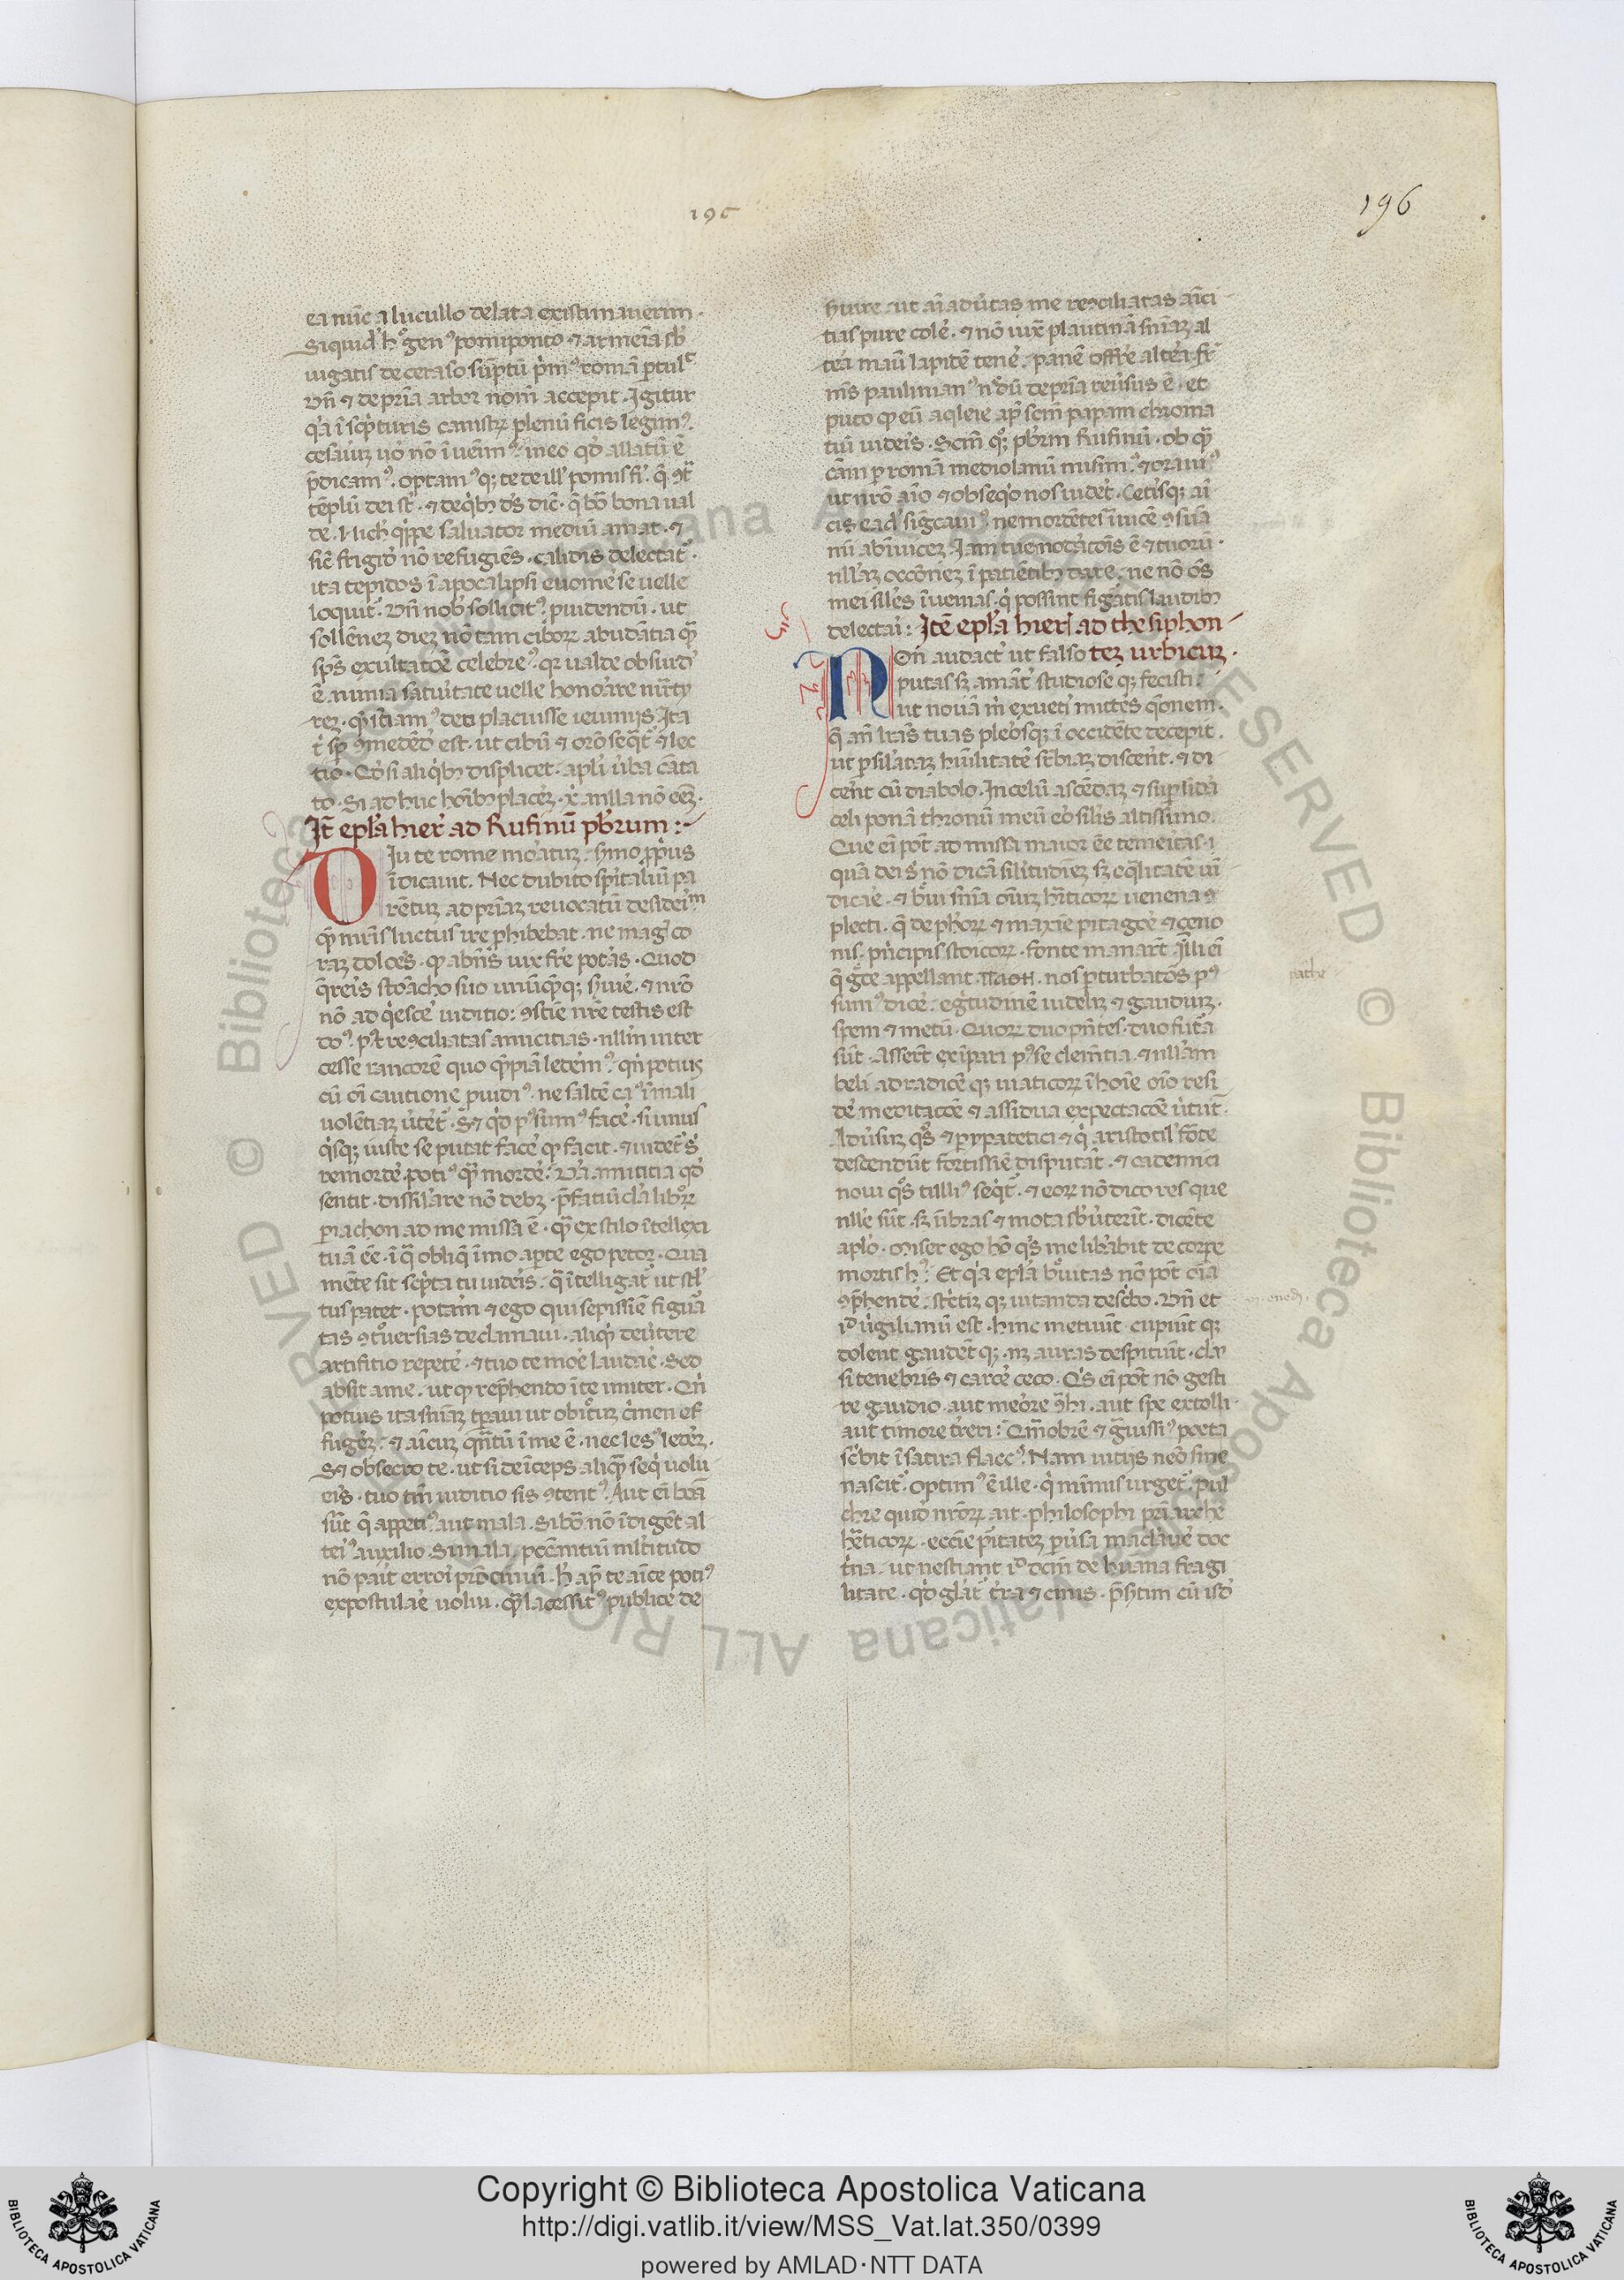 195
196
ea nūc a lucullo delata existimauerim.
Siquid' h gen' pomi ponto ⁊ armeīa sb
iugatis de ceraso sūptū pm' romā ptul'
Vñ ⁊ de pria arbor nom accepit. Igitur
qa ī scpturis canistrꝝ plenū ficis legim'.
cesarūꝫ uo nō īuēim'. īneo qd' allatū ē
pdicam'. optam'qꝫ te de ill' pomis fi.
tēplū dei st. ⁊ de qbꝫ ds dic. q bō bona ual
de. Nich qppe saluator mediū amat. ⁊
sic frigid' nō refugiēs. calidis delectat
ita tepidos ī apocalipsi euome se uelle
loquit. Vñ nob sollicit' puidendū. ut
sollēneꝫ dieꝫ nō tam ciboꝝ abūdātia qꝫ
sps exultatōe celebre'. qꝛ ualde obsurd'
ē. nimia satuitate uelle honorare mrty
reꝫ. qꝫ sciam' deo placuisse ieiuniis. Ita
t sp ꝯmedēd' est. ut cibū ⁊ orō seqt ⁊ lec
tio. Qd' si aliqbꝫ displicet. apli uba cāta
to. Si adhuc hoībꝫ placeꝫ. x ancilla nō eēꝫ.
It epl'a hier' ad Rufinū pbrum :~
DIu te rome moratuꝫ. smo ppus
īdicauit. Nec dubito spitaliū pa
rētuꝫ ad priaꝫ reuocatū desideim
qꝫ mris luctus ire phibebat. ne mag' co
raꝫ doleres. qd' abñs uix fre potas. Quod
qreis stomacho suo unūqꝫqꝫ suire. ⁊ nro
nō adqesce iuditio: ꝯscīe nre testis est
do'. pt reꝯciliatas amicitias. nllm inter
cesse rancorē quo qꝫpiā ledem'. qn potius
cū oi cautione puidi'. ne saltē ca' ī mali
uolētiaꝫ utet. Sꝫ qd' p'sum' face. si unus
qsqꝫ iuste se putat face qd facit. ⁊ uidet s'
remorde poti' qꝫ morde. Va amicitia qd'
sentit. dissilare nō debꝫ. pfatiūcla liboꝝ
piachon ad me missa ē. qꝫ ex stilo ītellexi
tuā ēe. ī q obliq imo apte ego petor. Qua
mēte sit scpta tu uideis. q ītelligat ut stl'
tus patet. poteram ⁊ ego qui sepissiē figuā
tas ꝯtouersias declamaui. aliqd de uetere
artifitio repete. ⁊ tuo te more laudae. Sed
absit a me. ut qd reprhendo ī te imiter. Qn
potius ita sniaꝫ tpaui ut obiectuꝫ crimen ef
fugeꝫ. ⁊ amicuꝫ qntū ī me ē. nec les' ledeꝫ.
Sꝫ obsecro te. ut si deīceps aliqꝫ seq uolu
eis. tuo tm iuditio sis ꝯtent'. Aut ei bona
sūt q appeti' aut mala. Si bō nō īdigēt al
tei' auxilio. Si mala. peccantiū mltitudo
nō parit erroi prociniū. h ap te amice poti'
expostulae uolui. qꝫ lacessit' publice de
suire. ut aiaduertas me reꝯciliatas amici
tias pure cole. ⁊ nō iuxta plautinā sniaꝫ al
tera manu lapidē tene. panē offre altera. fr
ms paulinian' nōdū de pria reūsus ē. et
puto qd eū aqleie ap scm papam chroma
tiū uideis. Scm qqꝫ pbrm Rufinū. ob qꝫ
cām p romā mediolanū misim'. ⁊ oraui'
ut nro aio ⁊ obseqo nos uidet. Cetisqꝫ ami
cis ead' signicaui'. ne mordētes inuicē ꝯsūa
mi abinuiceꝫ. Iam tue modatōis ē ⁊ tuoꝝ
nllaꝫ occoneꝫ ī patiētibꝫ dare. ne nō os
mei siles īuenias. q possint figatis laudibꝫ
delectari: Itē epl'a hieri ad thesiphon
teꝫ urbicuꝫ.
NOn audact ut falso
putas sꝫ amāt studioseqꝫ fecisti:
ut nouā m ex ueti mittes qonem.
q an lras tuas pleosqꝫ ī occidēte decepit.
ut p silataꝫ humilitatē supbiaꝫ discent. ⁊ di
cent cū diabolo. In celū ascēdaꝫ ⁊ sup sida
celi ponā thronū meū eo silis altissimo.
Que ei pot admissa maior eē temeitas. i
quā dei s nō dicā silitudieꝫ sꝫ eqlitatē ui
dicare. ⁊ bui snia oiuꝫ hticoꝝ uenena ꝯ
plecti. q de phoꝝ ⁊ maxie pitagore ⁊ ceno
nis. principis stoicoꝝ. fonte manart. Illi ei
q gce appellant παθη. nos pturbatōs p'
sum' dice. egtudinē uidelꝫ ⁊ gaudiuꝫ.
spem ⁊ metū. Quoꝝ duo pntes. duo futa
sūt. Assert extirpari p'se de mentia. ⁊ nllam
beli. ad radicē qꝫ uiaticoꝝ ī hoie oio resi
de meditacōe ⁊ assidua expectacōe uirtut.
Aduersuꝫ qs ⁊ perypatetici ⁊ q aristotil' fōte
descendūt fortissiē disputāt. ⁊ cademici
noui qs tulli' seqt. ⁊ eoꝝ nō dico res que
nlle sūt. sꝫ ūbras ⁊ mota sb uterit. dicēte
aplo. Miser ego hō qs me libabit de corpe
mortis h'. Et qa eple breuitas nō pot oīa
ꝯphende. strictiꝫ qꝫ uitanda describo. Vñ et
id uigilianū est. hinc metuūt. cupiūt qꝫ
dolent gaudēt qꝫ. nꝫ auras despitiūt. clau
si tenebris ⁊ carcē ceco. Qs ei pot nō gesti
re gaudio. aut merore ꝯhi. aut spe extolli.
aut timore terreri: Qmobrē ⁊ guissi' poeta
scbit ī satira flacc'. Nam uitiis nemō sine
nascit. optim' ē ille. q mimis urget. Pul
chre quid nroꝝ ait. philosophi priarche
hreticoꝝ. ecciē puritateꝫ pūsa maclauere doc
tna. ut nesciant id dcm de huana fragi
litate. qd gliat tra ⁊ cinis. Psertim cū isd'
pathe
Copyright © Biblioteca Apostolica Vaticana
http://digi.vatlib.it/view/MSS_Vat.lat.350/0399
powered by AMLAD·NTT DATA
© Biblioteca Apostolica Vaticana ALL RIGHTS RESERVED © Biblioteca Apostolica Vaticana ALL RIGHTS RESERVED
BIBLIOTECA APOSTOLICA VATICANA
BIBLIOTECA APOSTOLICA VATICANA